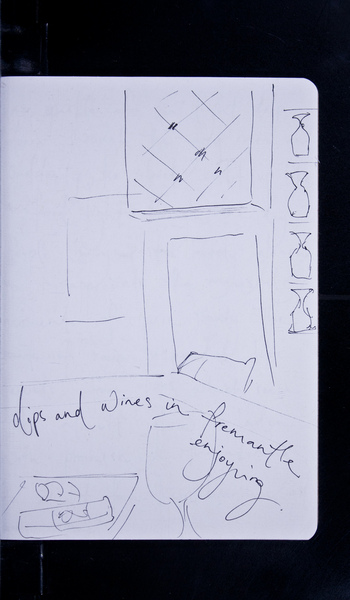 dips and wines in fremantle
enjoying.